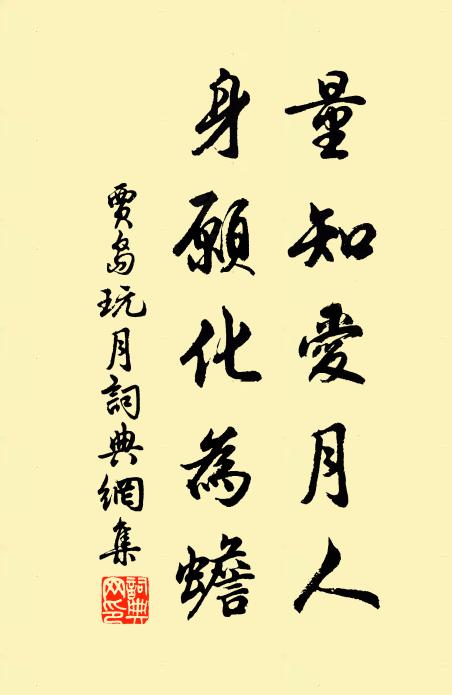 量知愛月人
身願化為蟾
賈島玩月詞典網集
詞典網印